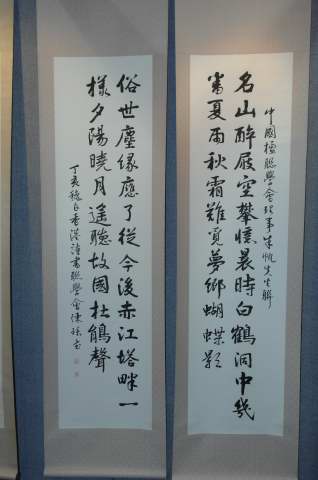 中國楹聯學會理事朱帆先生聯
名山醉屐空攀憶晨時白鶴洞中幾
番夏雨秋霜難覓夢鄉蝴蝶影
俗世塵緣應了從今後赤江塔畔一
樣夕陽曉月遙聽故國杜鵑聲
丁亥秋日香港書聯學會陳